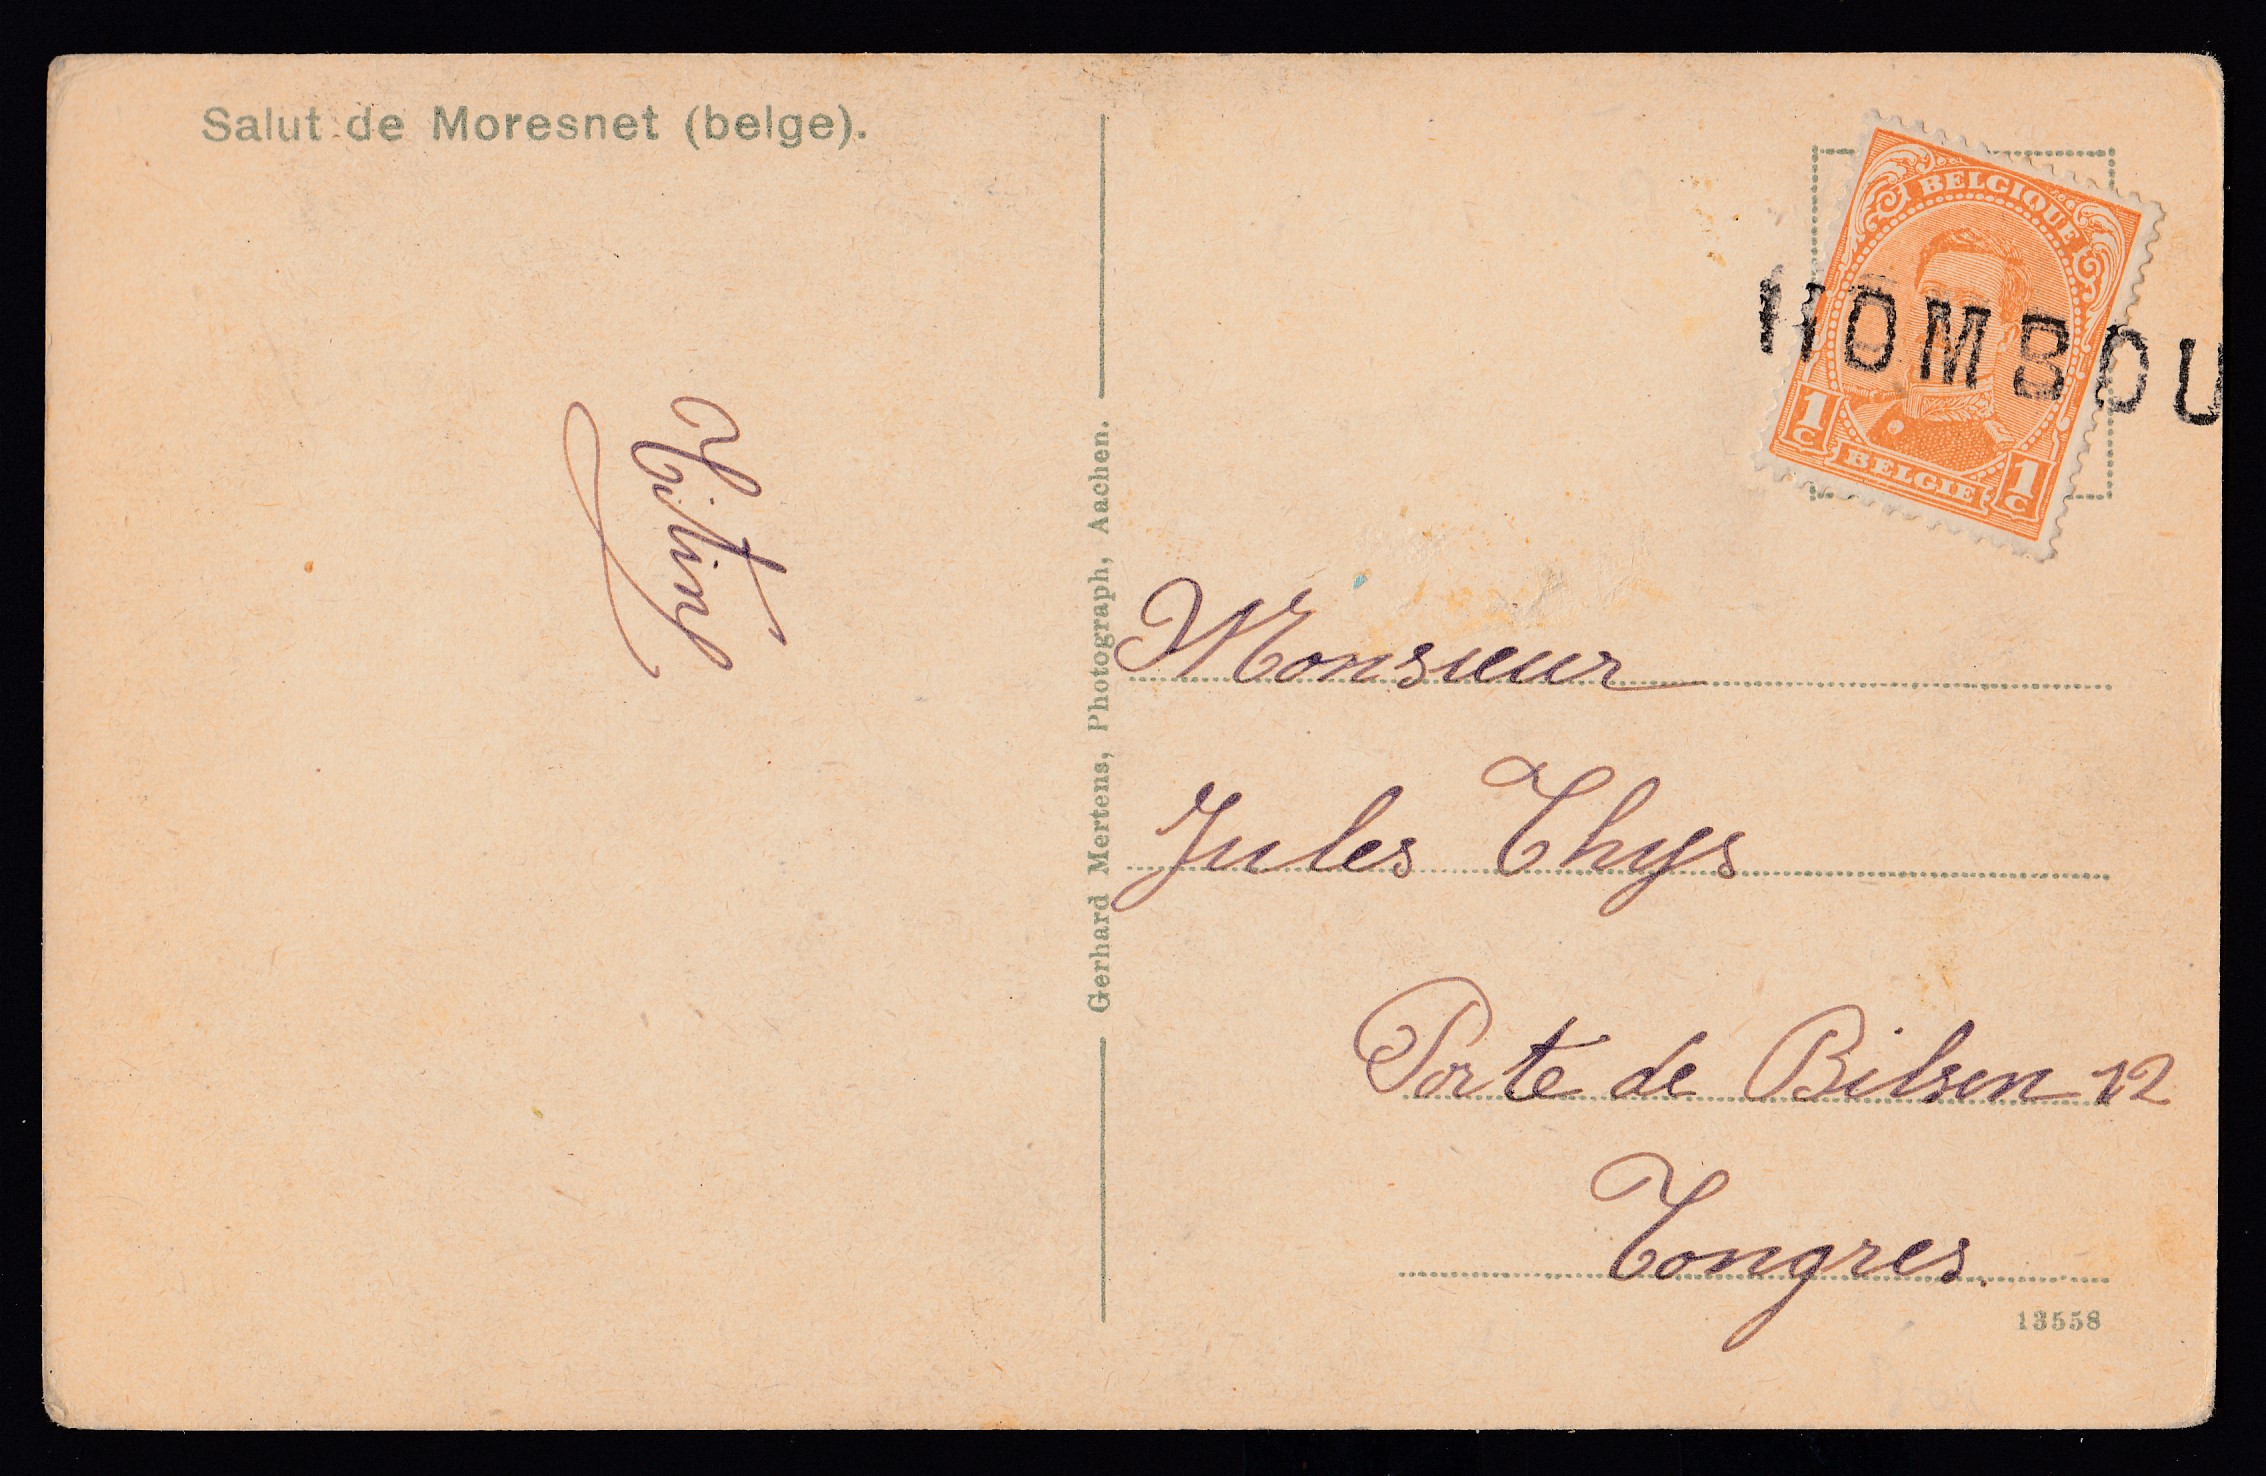 Salut de Moresnet (belge).
Gerhard Mertens, Photograph, Aachen.
BELGIQUE
1c
BELGIE
1c
HOMBOU
Monsieur
Jules Thys
Porte de Bilsen 12
Tongres.
13558